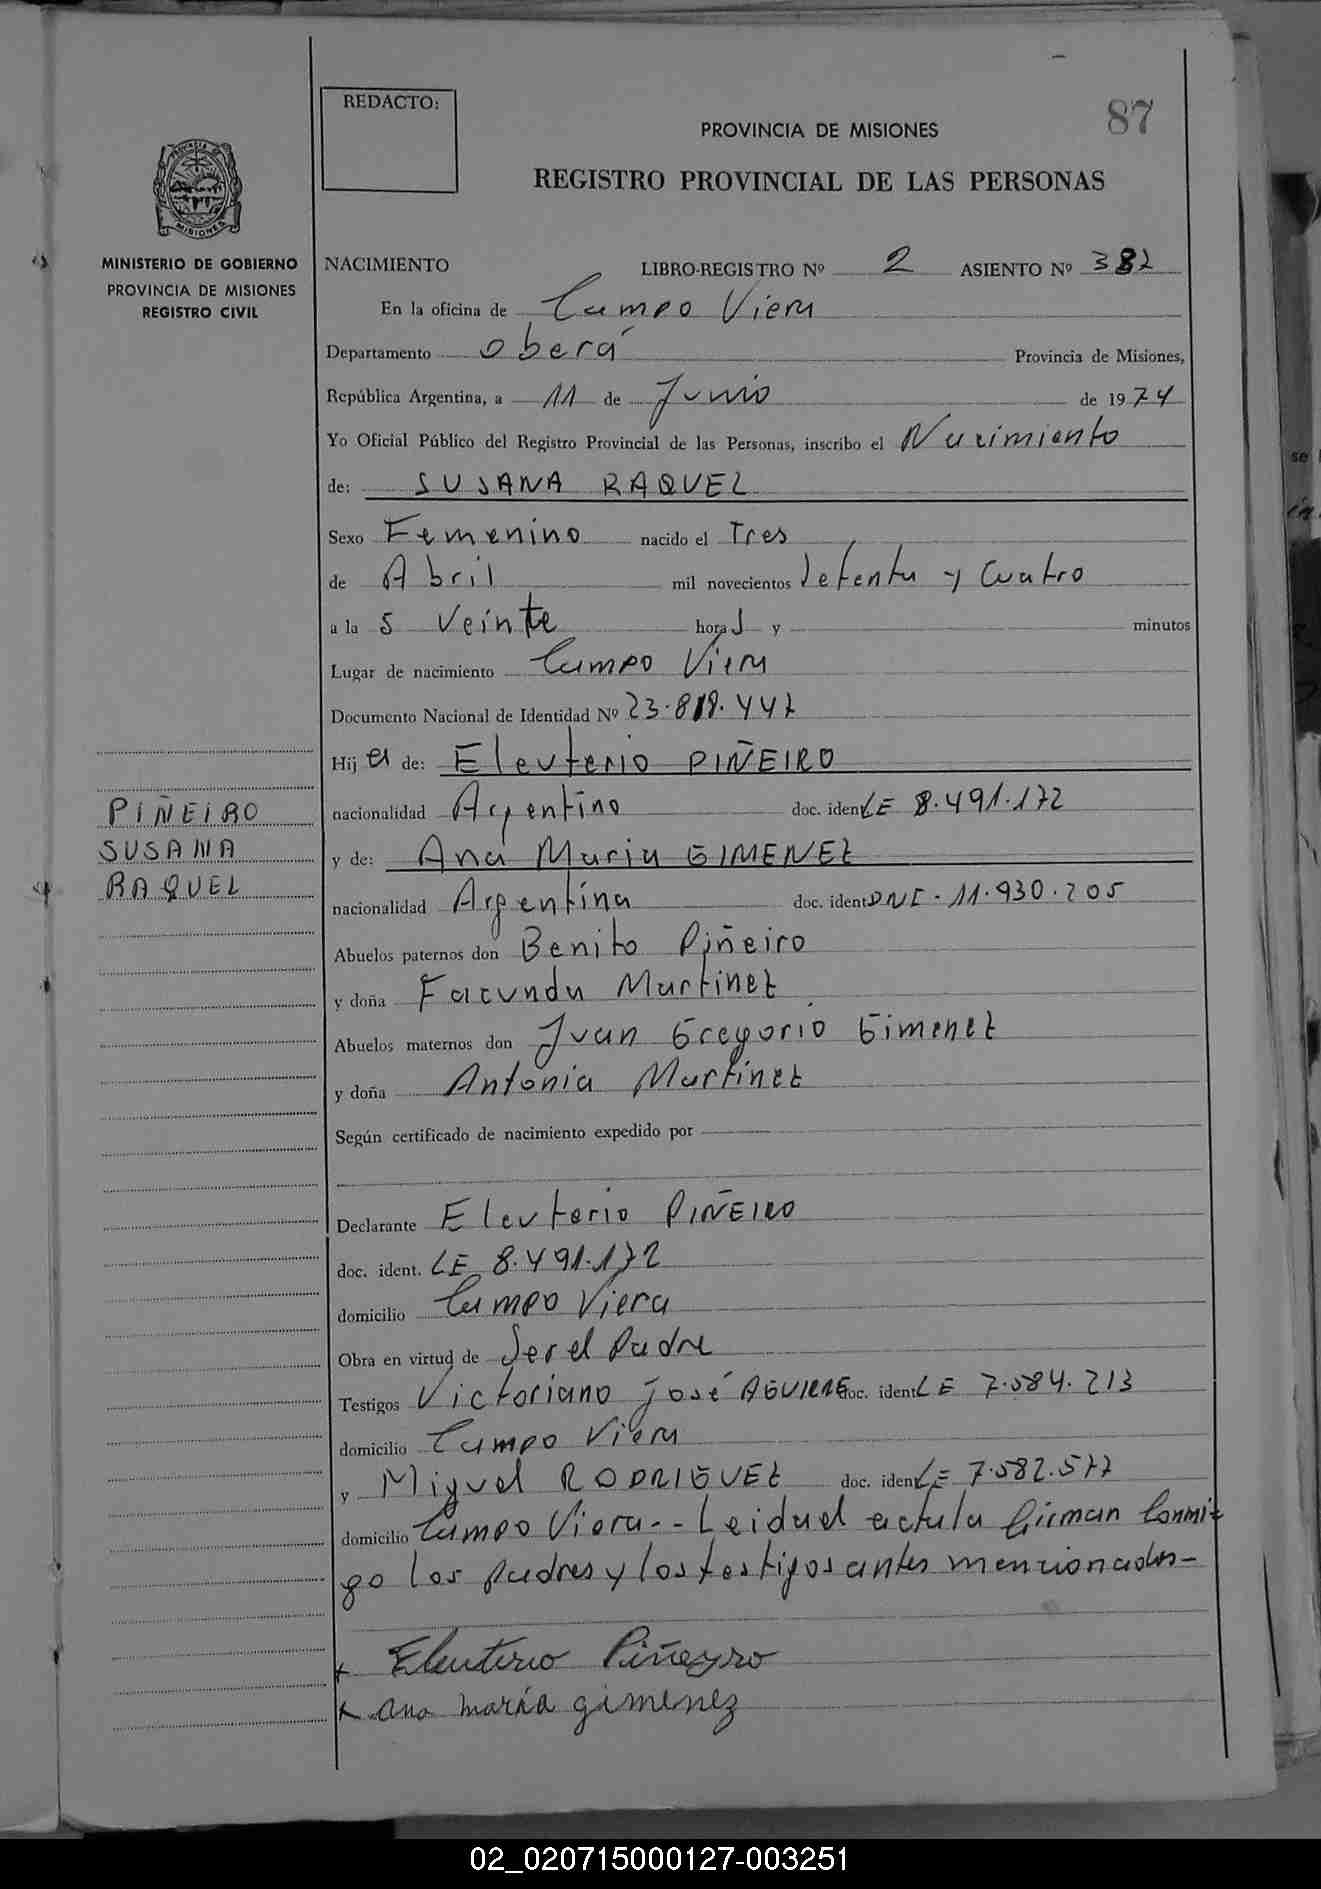 REDACTO:
87
PROVINCIA DE MISIONES
REGISTRO PROVINCIAL DE LAS PERSONAS
MISIONES
MINISTERIO DE GOBIERNO
PROVINCIA DE MISIONES
REGISTRO CIVIL
NACIMIENTO LIBRO-REGISTRO Nº 2 ASIENTO Nº 382
En la oficina de Campo Viera
Departamento Oberá Provincia de Misiones,
República Argentina, a 11 de Junio de 1974
Yo Oficial Público del Registro Provincial de las Personas, inscribo el Nacimiento
de: SUSANA RAQUEL
Sexo Femenino nacido el Tres
de Abril mil novecientos setenta y Cuatro
a la s veinte hora s y minutos
Lugar de nacimiento Campo Viera
Documento Nacional de Identidad Nº 23.819.442
Hij a de: Eleuterio PIÑEIRO
nacionalidad Argentino doc. ident. LE 8.491.172
y de: Ana Maria GIMENEZ
nacionalidad Argentina doc. ident. DNI. 11.930.205
PIÑEIRO
SUSANA
RAQUEL
Abuelos paternos don Benito Piñeiro
y doña Facunda Martinez
Abuelos maternos don Juan Gregorio Gimenez
y doña Antonia Martinez
Según certificado de nacimiento expedido por
Declarante Eleuterio PIÑEIRO
doc. ident. LE 8.491.172
domicilio Campo Viera
Obra en virtud de Ser el Padre
Testigos Victoriano José AGUIRRE doc. ident. LE 7.584.213
domicilio Campo Viera
y Miguel RODRIGUEZ doc. ident. LE 7.582.577
domicilio Campo Viera-- Leida el acta la firman Conmi-
go los padres y los testigos antes mencionados-
x Eleuterio Piñeyro
x Ana maría gimenez
02_020715000127-003251